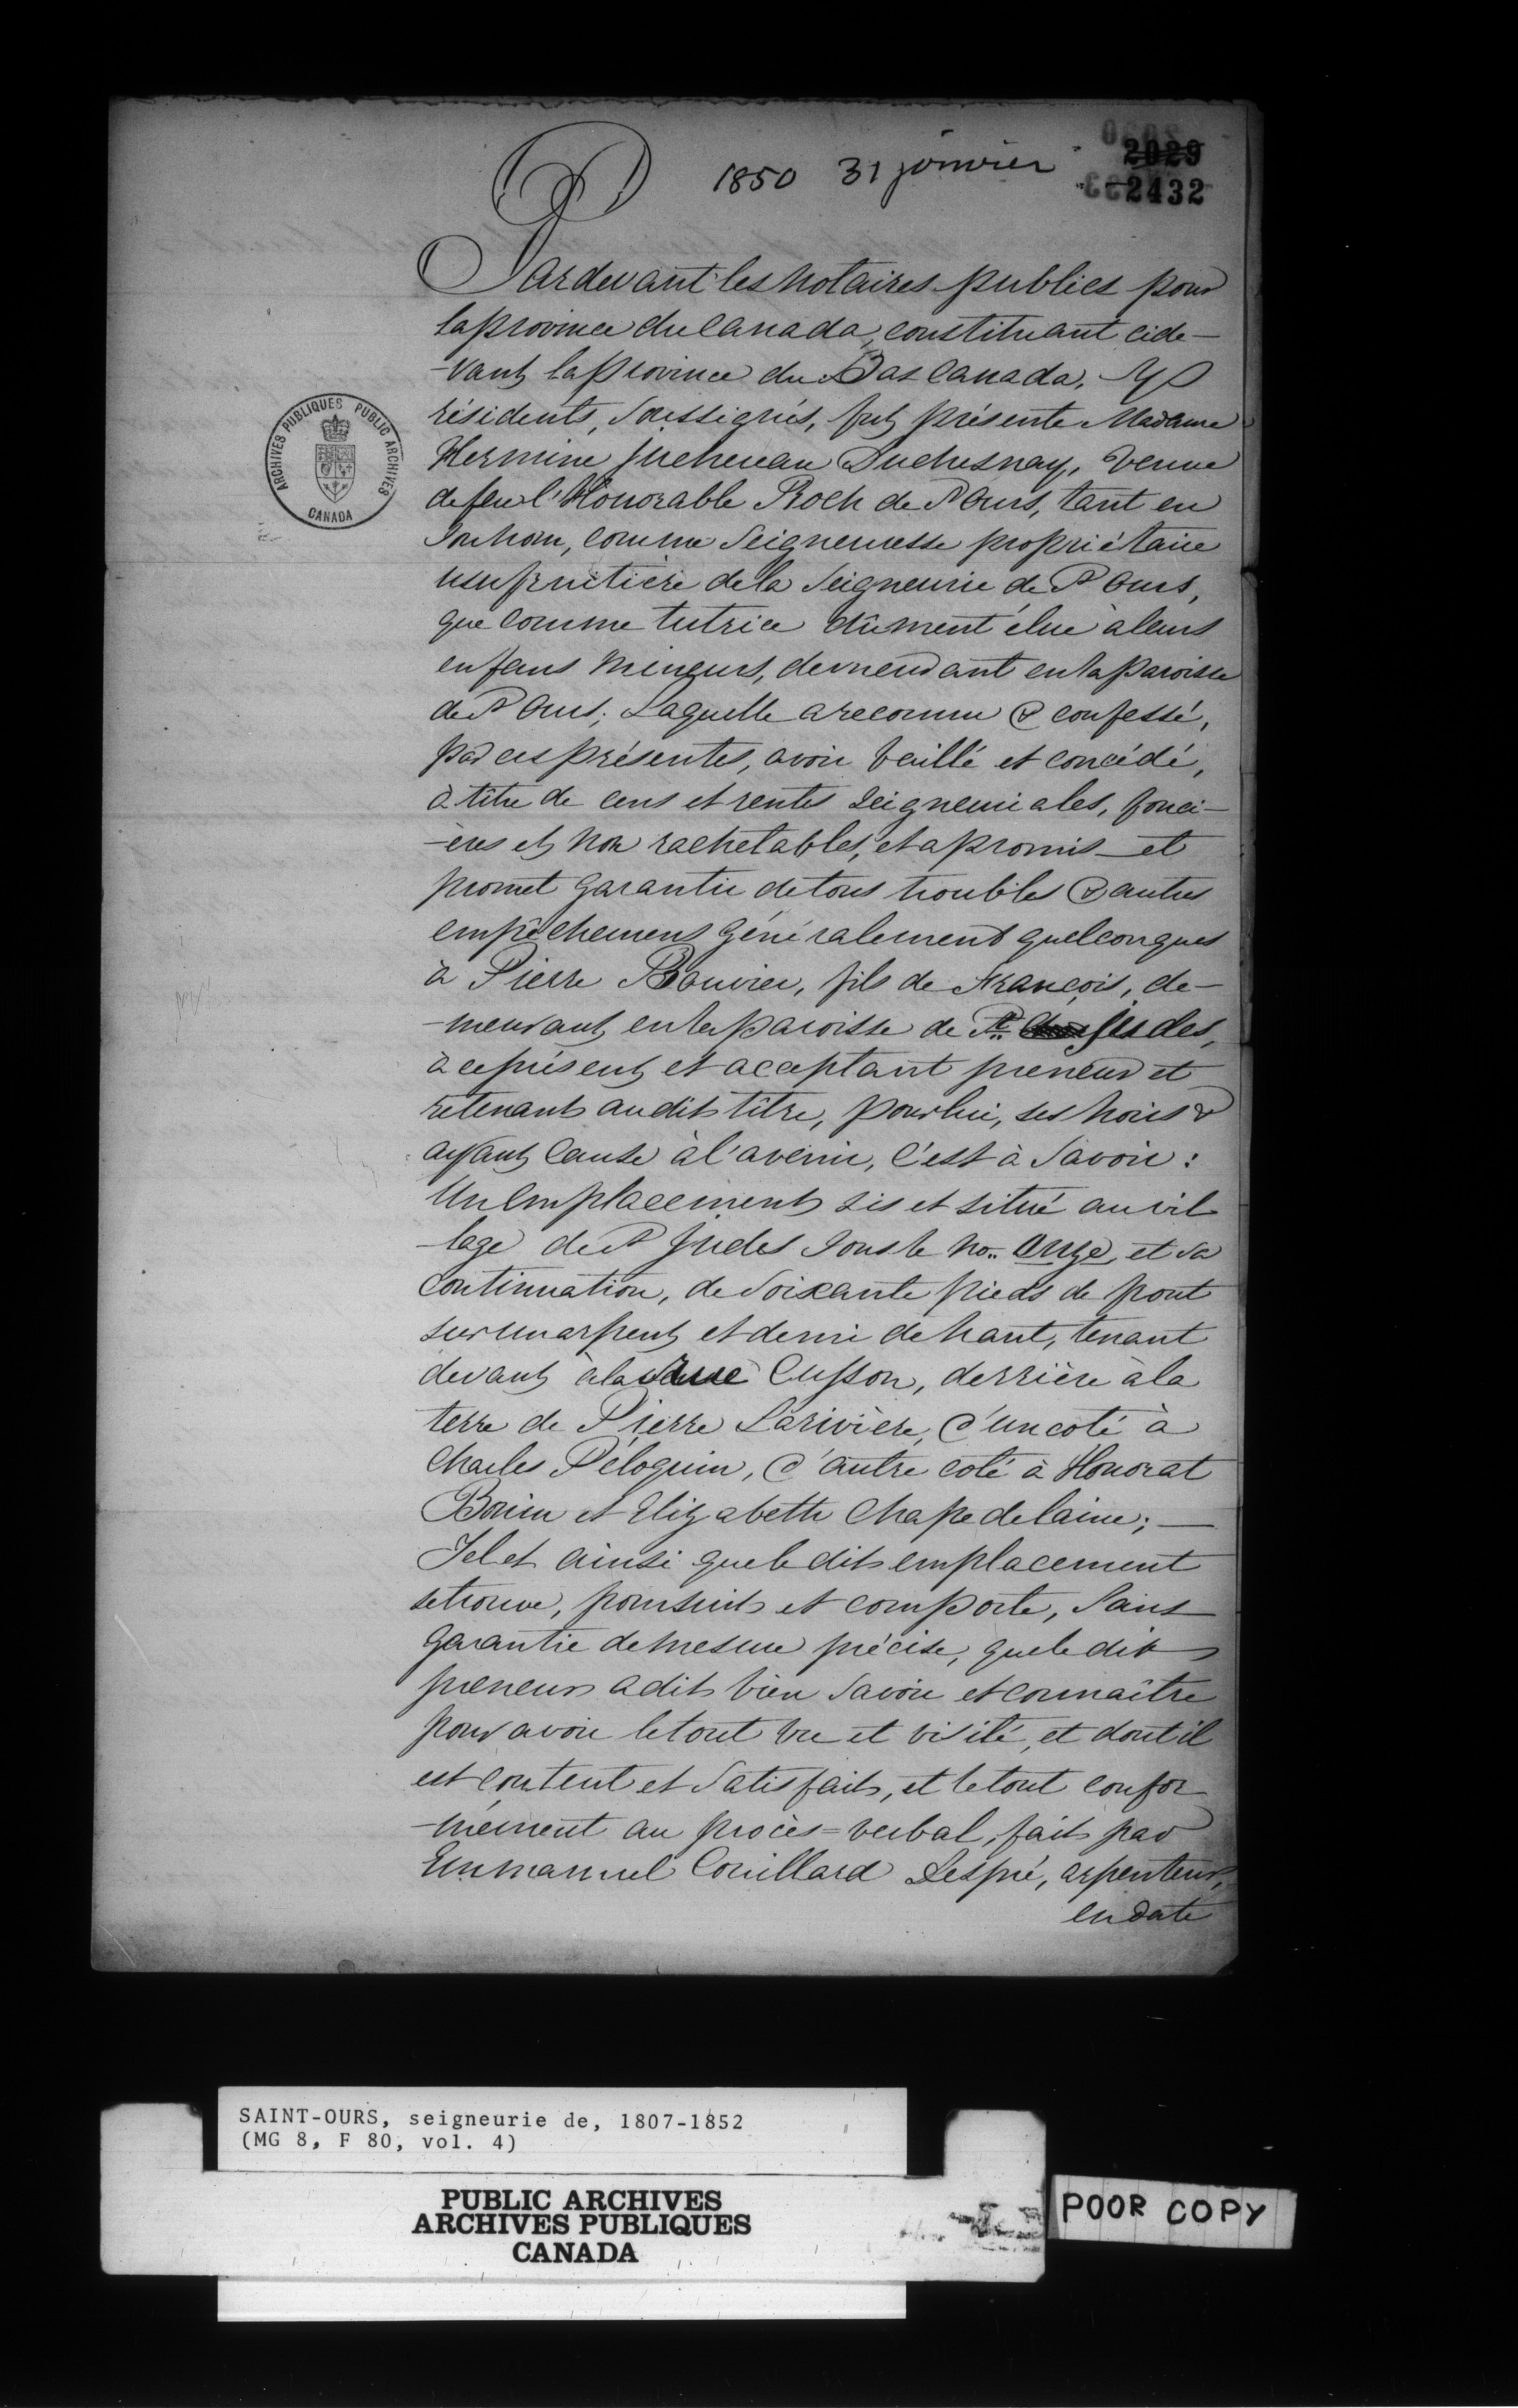 1850 31 janvier
2029
2432
Pardevant les notaires publics pour
la province du Canada, constituant cide-
-vant la province du Bas Canada, y
résidents, soussignés, fut présente Madame
Hermine Juchereau Duchesnay, veuve
de feu l'Honorable Roch de St Ours, tant en
son nom, comme Seigneuresse propriétaire
usufruitière de la Seigneurie de St Ours,
que comme tutrice dûment élue à leurs
enfans mineurs, demeurant en la paroisse
de St Ours; Laquelle a reconnu & confessé,
par ces présentes, avoir baillé et concédé,
à titre de cens et rentes seigneuriales, fonci-
-ères et non rachetables, et a promis et
promet garantir de tous troubles & autres
empêchemens généralement quelconques
à Pierre Bouvier, fils de François, de-
-meurant en la paroisse de St. Judes,
à ce présent et acceptant preneur et
retenant audit titre, pour lui, ses hoirs &
ayant cause à l'avenir, c'est à savoir:
Un emplacement sis et situé au vil-
-lage de St Judes sous le no. onze, et sa
continuation, de soixante pieds de front
sur un arpent et demi de haut, tenant
devant à la rue Cusson, derrière à la
terre de Pierre Larivière, d'un coté à
Charles Péloquin, d'autre coté à Honorat
Bouin et Elizabeth Chapedelaine; —
Tel et ainsi que le dit emplacement
se trouve, poursuit et comporte, sans
garantie de mesure précise, que le dit
preneur a dit bien savoir et connaître
pour avoir le tout vu et visité, et dont il
est content et satisfait, et le tout confor-
-mément au procès=verbal, fait par
Emmanuel Couillard Després, arpenteur,
en date
ARCHIVES PUBLIQUES PUBLIC ARCHIVES
CANADA
SAINT-OURS, seigneurie de, 1807-1852
(MG 8, F 80, vol. 4)
PUBLIC ARCHIVES
ARCHIVES PUBLIQUES
CANADA
POOR COPY